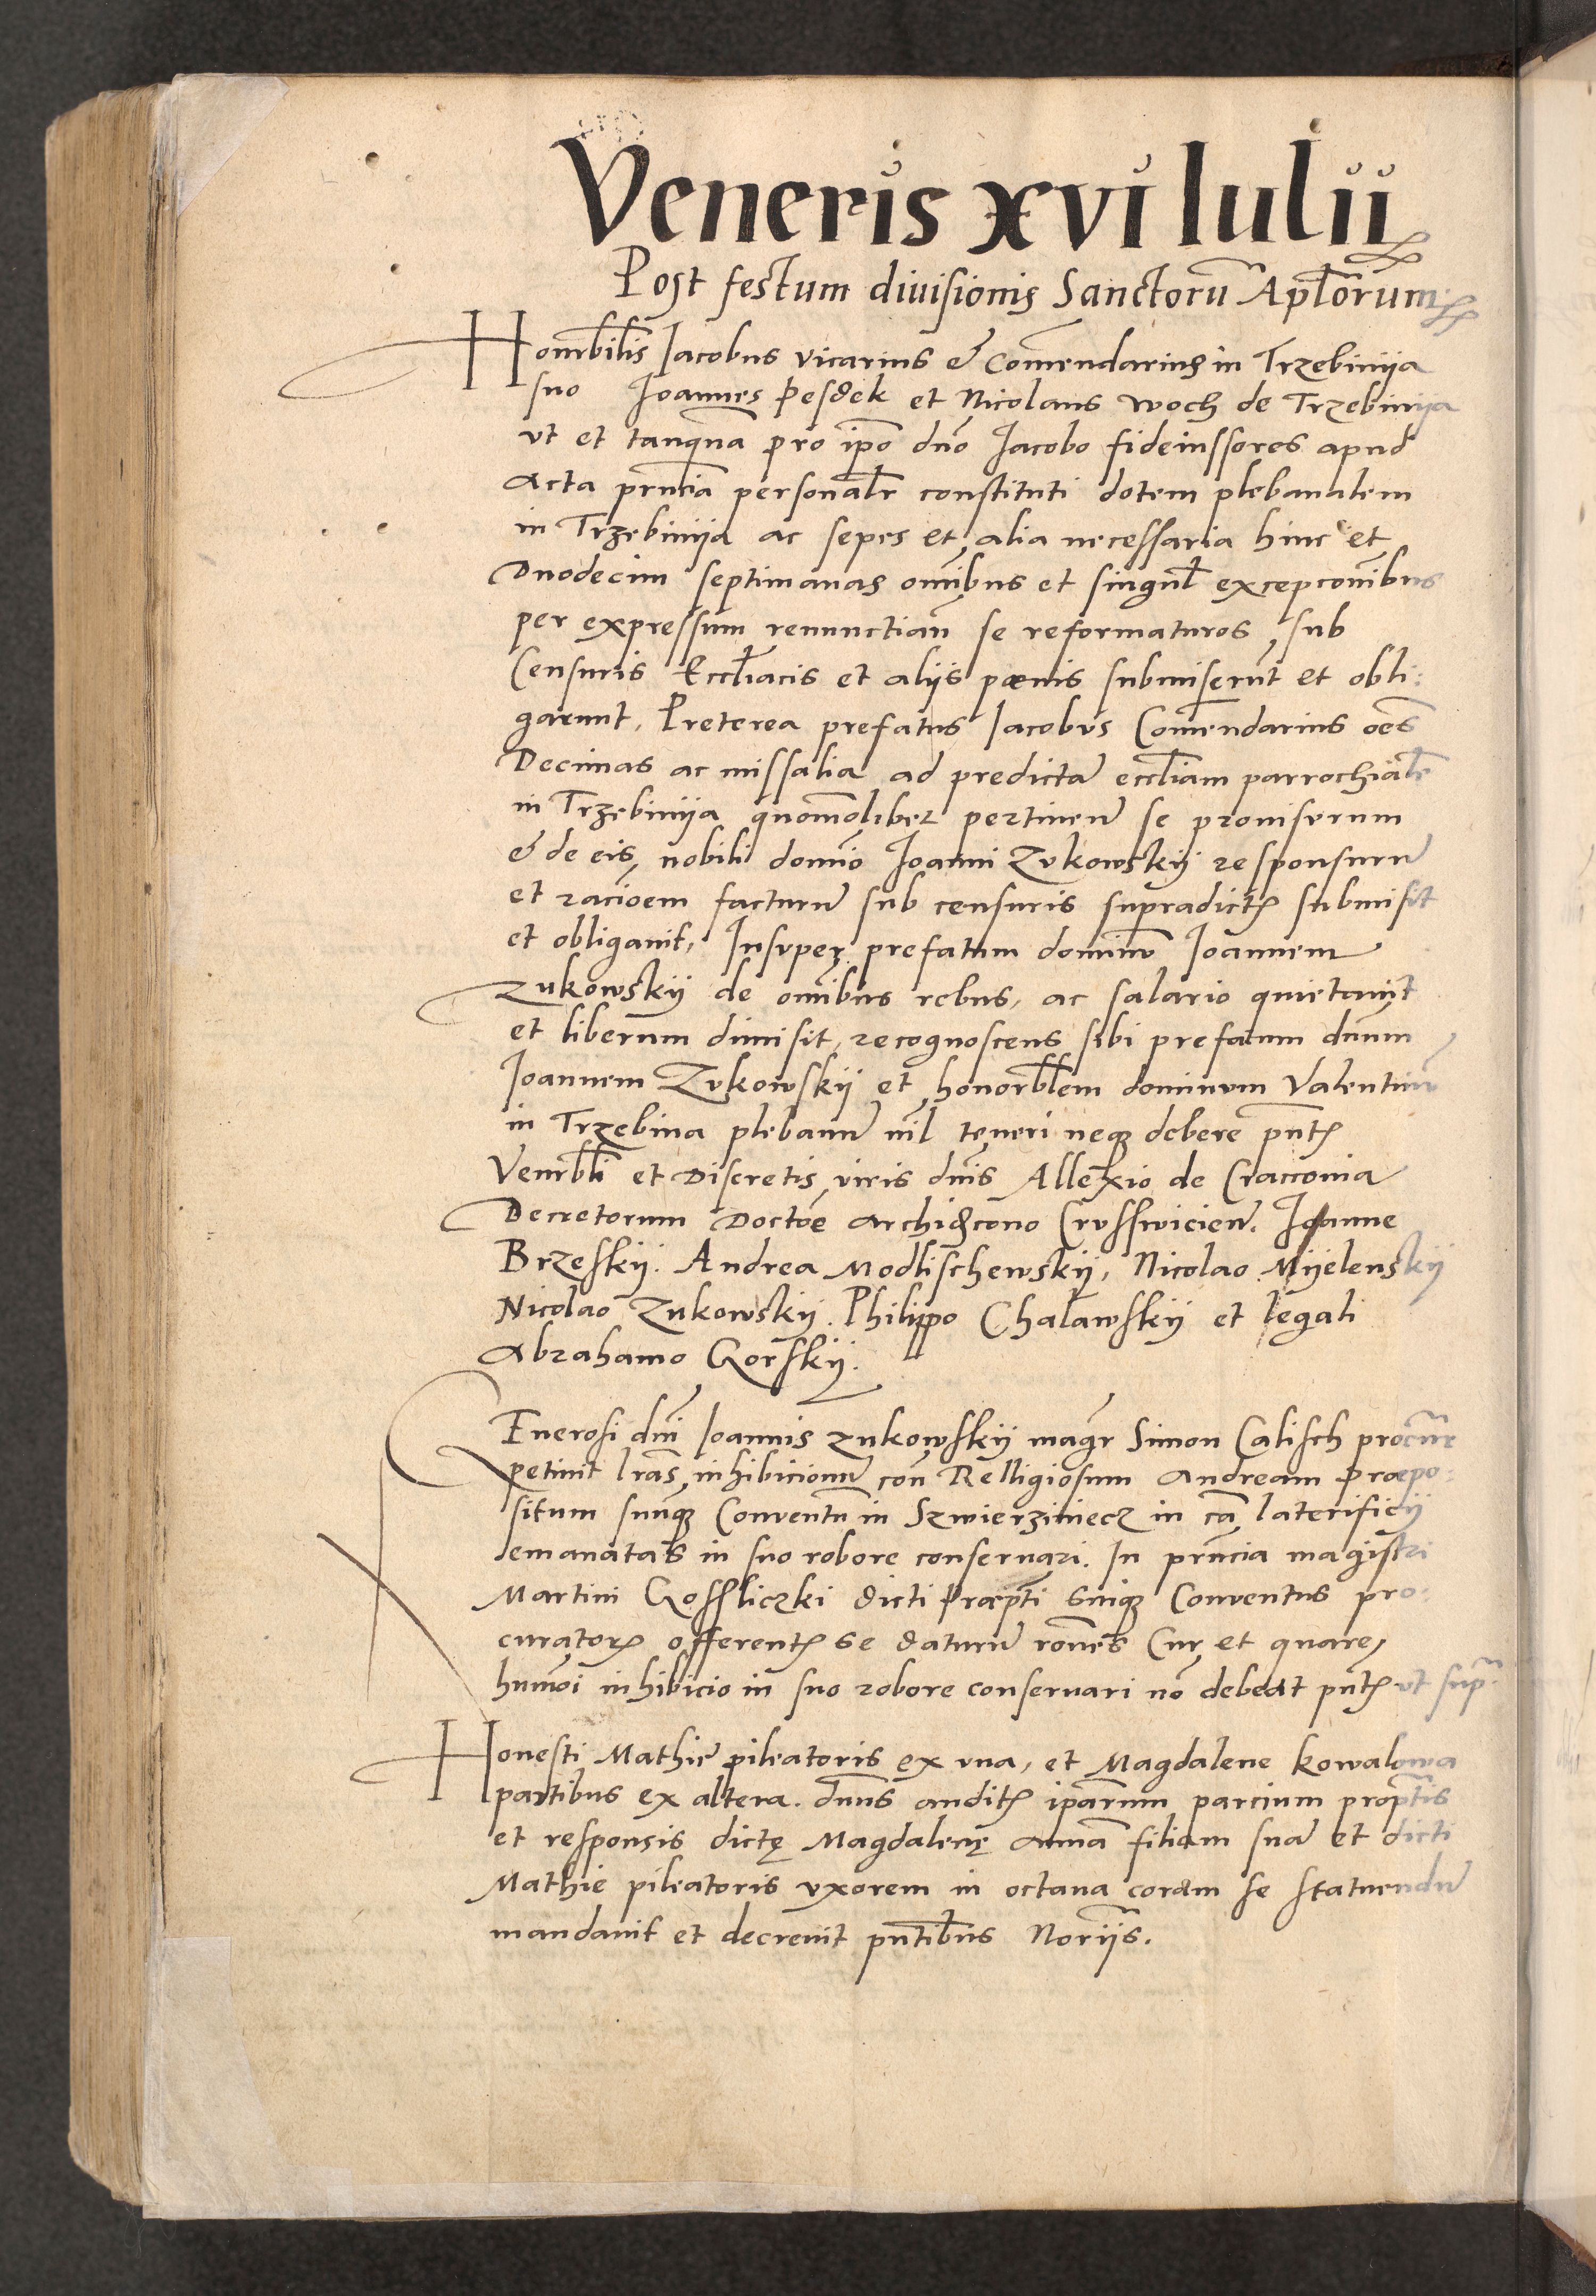 Veneris xvi Iulii
Post festum diuisionis Sanctorũ Apl̃orum
Honorb̃ilis Iacobus vicarius & Com̃endarius in Trzebinija
suo Ioannes Pesdek et Nicolaus Woch de Trzebinija
vt et tanquã pro ip̃o dño Iacobo fideiussores apud
Acta pr̃ncia personalr̃ constituti dotem plebanalem
in Trzebinija ac sepes et alia necessaria hinc et
Duodecim septimanas om̃ibus et singul̃ excepcõnibus
per expressum renunctiañ se reformaturos sub
Censuris Eccl̃iacis et alijs pœnis submiserũt et obli:
garunt. Preterea prefatus Iacobus Com̃endarius oẽs
Decimas ac missalia ad predictã eccl̃iam parrochialẽ
in Trzebinija quom̃olibet pertineñ se prouisurum
& de eis nobili domĩo Ioanni Zukowskij responsurũ
et raciõem facturũ sub censuris supradict̃ submisit
et obligauit, Insuper prefatum dominũ Ioannem
Zukowskij de om̃ibus rebus, ac salario quietauit
et liberum dimisit, recognoscens sibi prefatum dñum
Ioannem Zukowskij et honorb̃lem dominum Valentinũ
in Trzebina plebanũ nil̃ teneri neq̃ debere pñt̃
Venerb̃li et Discretis viris dñis Allexio de Cracconia
Decretorum Doctoẽ archidcono Crusswicieñ. Ioanne
Brzeskij. Andrea Modlischewskij, Nicolao Mijelenskij
Nicolao Zukowskij. Philippo Chalawskij et legali
Abrahamo Gorskij.
GEnerosi dñi Ioannis Zukowskij mag̃r Simon Calisch procũr
petiuit lr̃as inhibicionũ coñ Relligiosum Andream Præpo:
situm suũq̃ Conventũ in Szwierziniecz in cã laterificij
emanatas in suo robore conseruari. In pr̃ncia magistri
Martini Gossliczki dicti Præpt̃i suiq̃ Conventus pro:
curator̃ offerent̃ se daturũ roñes Cur et quare
humõi inhibicio in suo robore conseruari nõ debeat pñt̃ ut sup̃
Honesti Mathie pileatoris ex vna, et Magdalene kowalowa
partibus ex altera. dñus audit̃ ip̃arum parcium propt̃is
et responsis dictę Magdalenę annã filiam suã et dicti
Mathie pileatoris vxorem in octaua coram se statuendũ
mandauit et decreuit pñtib̃us Norijs.